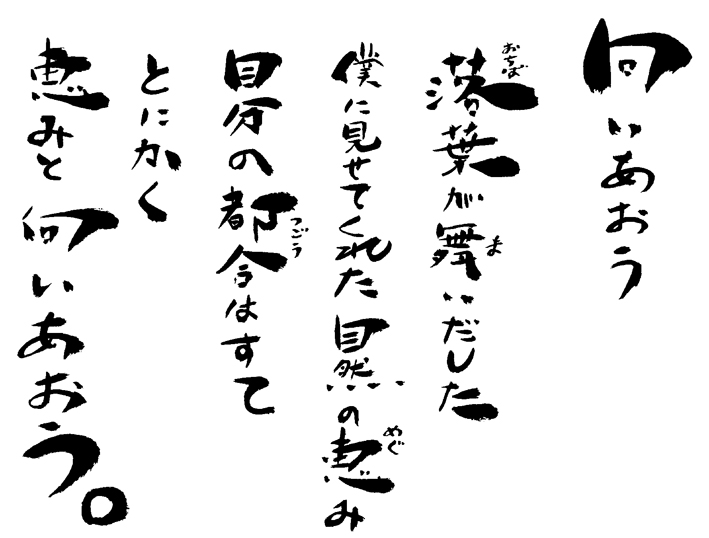 向いあおう
落葉が舞いだした
おちば
ま
僕に見せてくれた自然の恵み
めぐ
自分の都合はすて
つごう
とにかく
恵みと向いあおう。